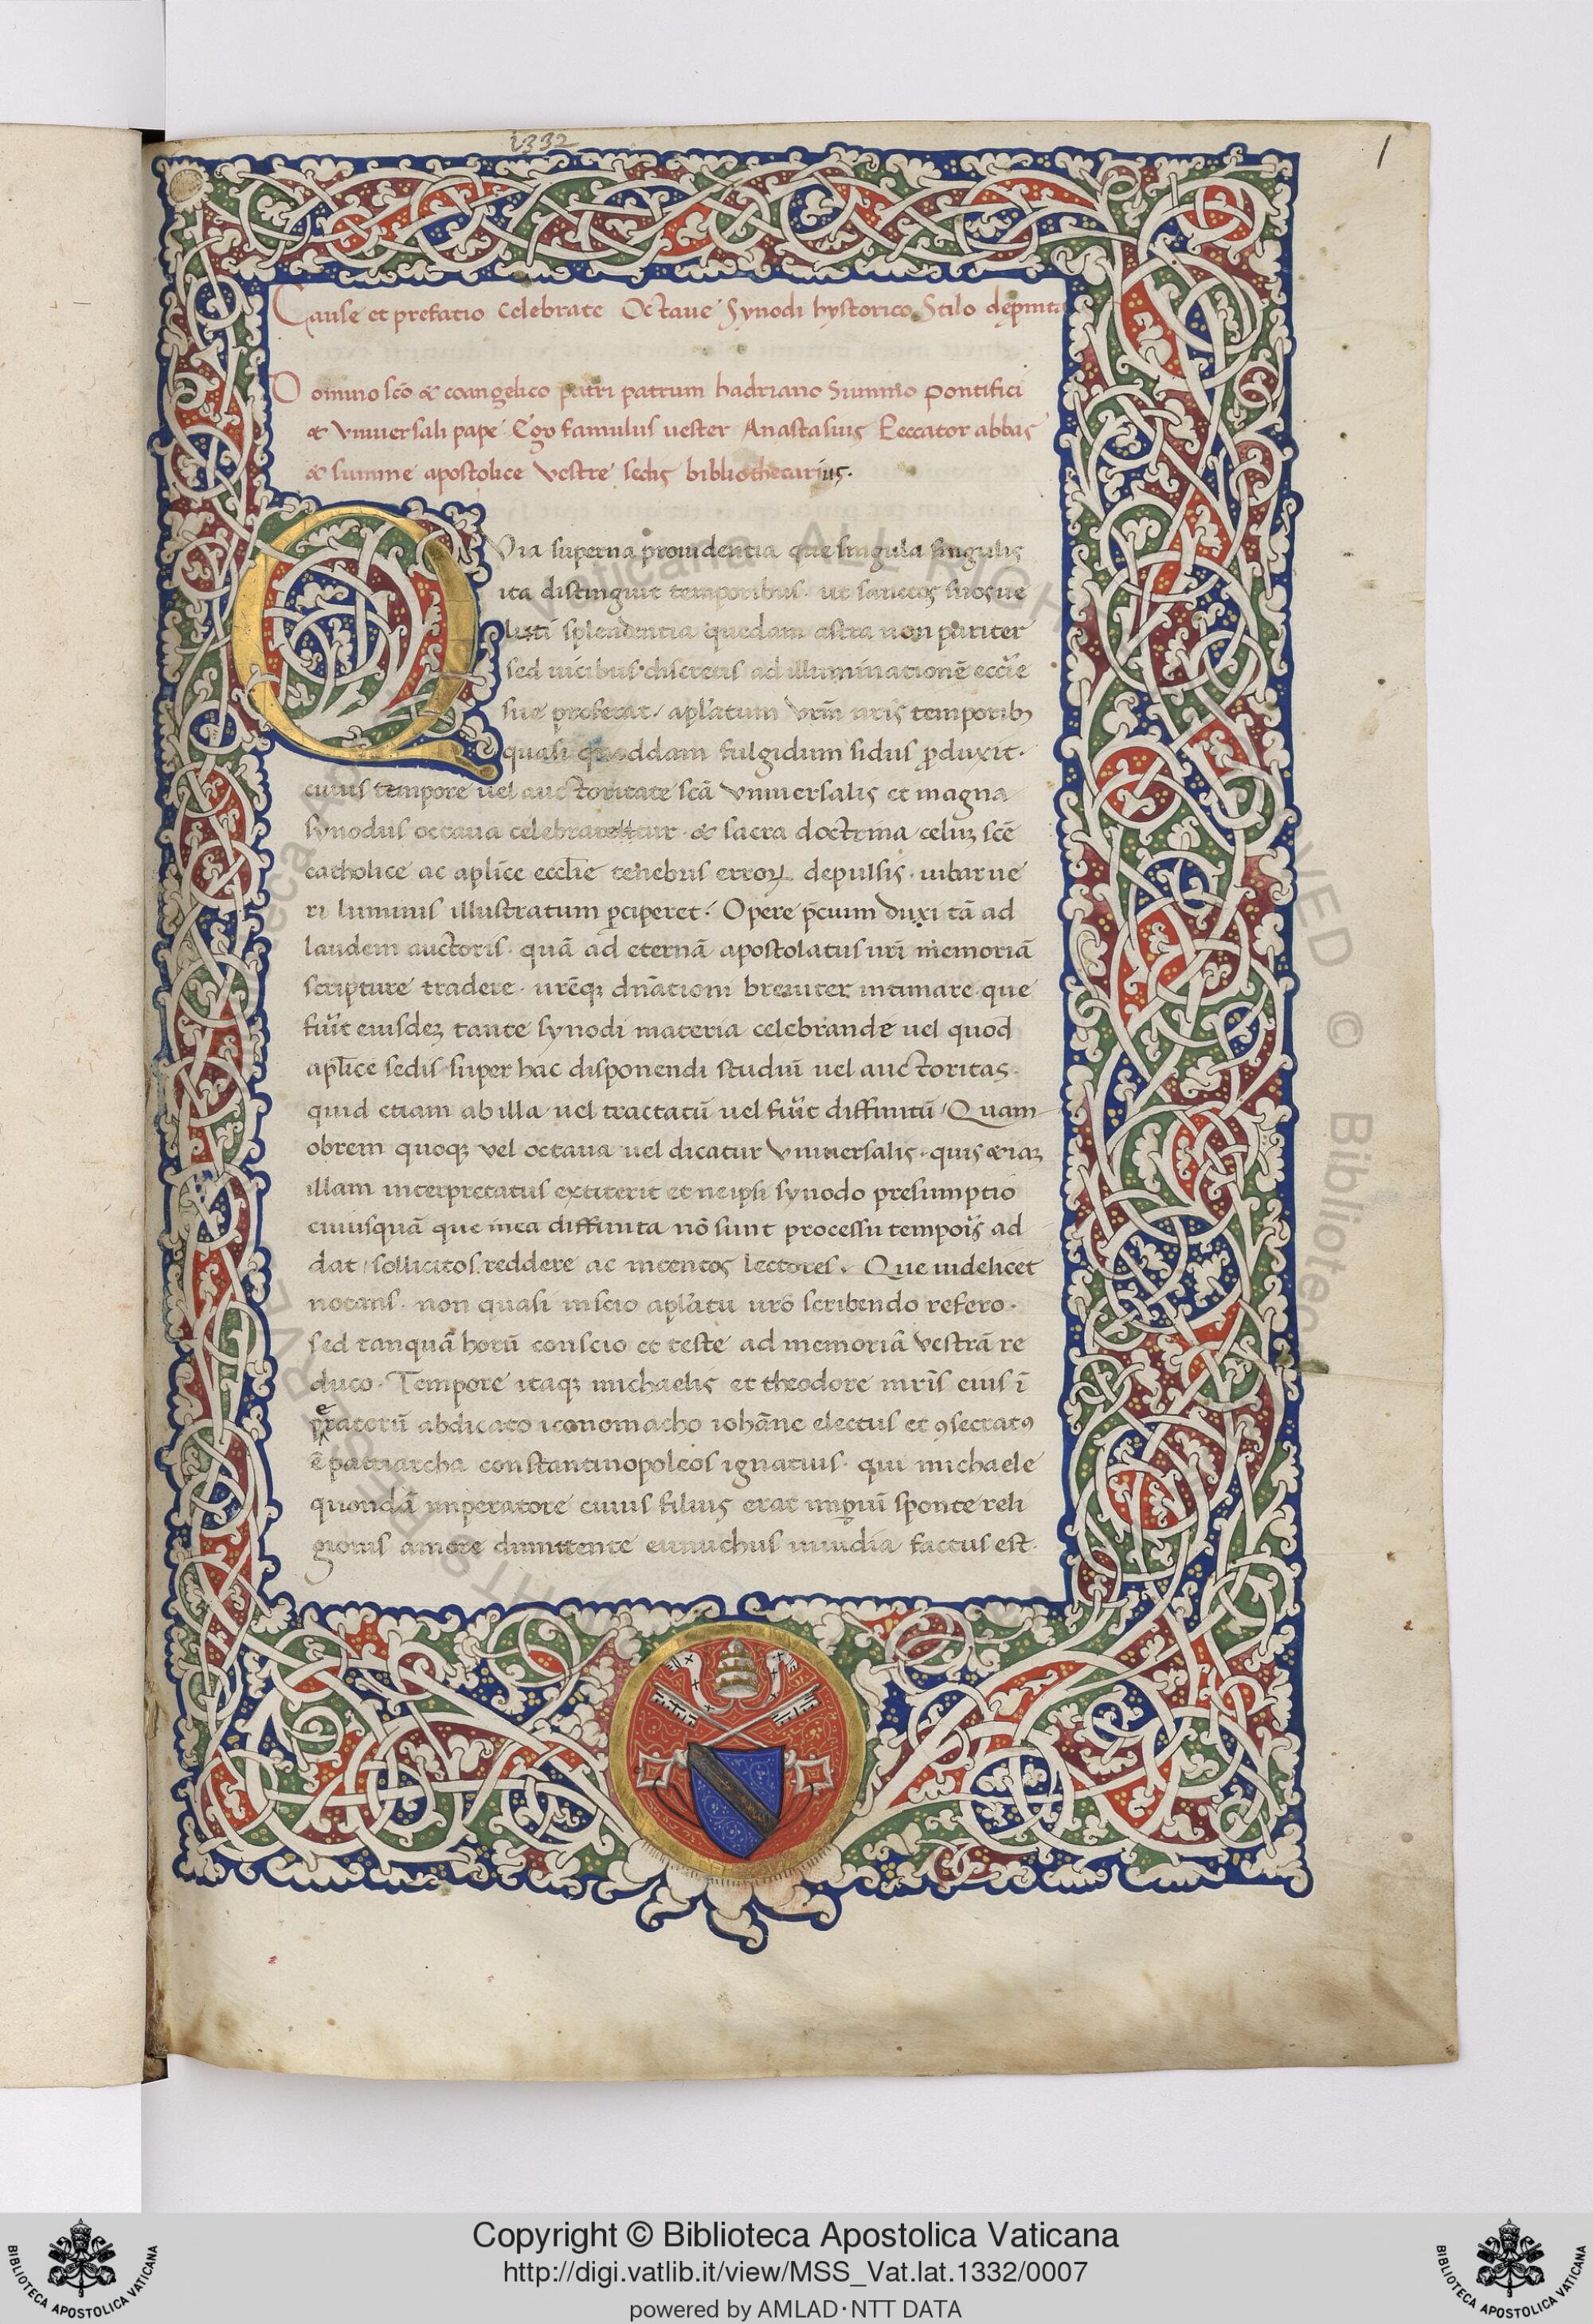 1332
1
Cause et prefatio celebrate Octaue Synodi hystorico Stilo depincta
Domino scō & coangelico patri patrum hadriano Summo pontifici
& vniuersali pape Ego famulus uester Anastasius Peccator abbas
& summe apostolice vestre sedis bibliothecarius.
QVia superna prouidentia que singula singulis
ita distinguit temporibus. ut sanctos suos ue
luti splendentia quedam astra non pariter
sed uicibus discretis ad illuminationē eccl'ie
sue proferat, apl'atum vrm̄ nr̄is temporib;
quasi quoddam fulgidum sidus ꝓduxit.
cuius tempore uel auctoritate scā vniuersalis et magna
synodus octaua celebraretur. & sacra doctrina celuz scē
catholice ac apl̄ice eccl̄ie tenebris erroꝝ depulsis. iubar ue
ri luminis illustratum ꝑciperet. Opere p̄cium duxi tā ad
laudem auctoris. quā ad eternā apostolatus uri memoriā
scripture tradere. urēq; dn̄ationi breuiter intimare. que
fuĩt eiusdez tante synodi materia celebrande uel quod
apl̄ice sedis super hac disponendi studiū uel auctoritas.
quid etiam ab illa uel tractatū uel fuĩt diffinitū, Quam
obrem quoq; vel octaua uel dicatur vniuersalis. quis &iaz
illam interpretatus extiterit et ne ipsi synodo presumptio
cuiusquā que inea diffinita nō sunt processu tempoīs ad
dat, sollicitos reddere ac intentos lectores. Que uidelicet
notans. non quasi inscio apl'atu urō scribendo refero.
sed tanquā horū conscio et teste ad memoriā vestrā re
duco. Tempore itaq; michaelis et theodore mr̄is eius ī
peratorū abdicato iconomacho iohāne electus et ꝯsecratꝰ
ē patriarcha constantinopoleos ignatius. qui michaele
quondā imperatore cuius filius erat imꝑiū sponte reli
gionis amore dimittente eunuchus inuidia factus est.
Copyright © Biblioteca Apostolica Vaticana
http://digi.vatlib.it/view/MSS_Vat.lat.1332/0007
powered by AMLAD·NTT DATA
BIBLIOTECA APOSTOLICA VATICANA
BIBLIOTECA APOSTOLICA VATICANA